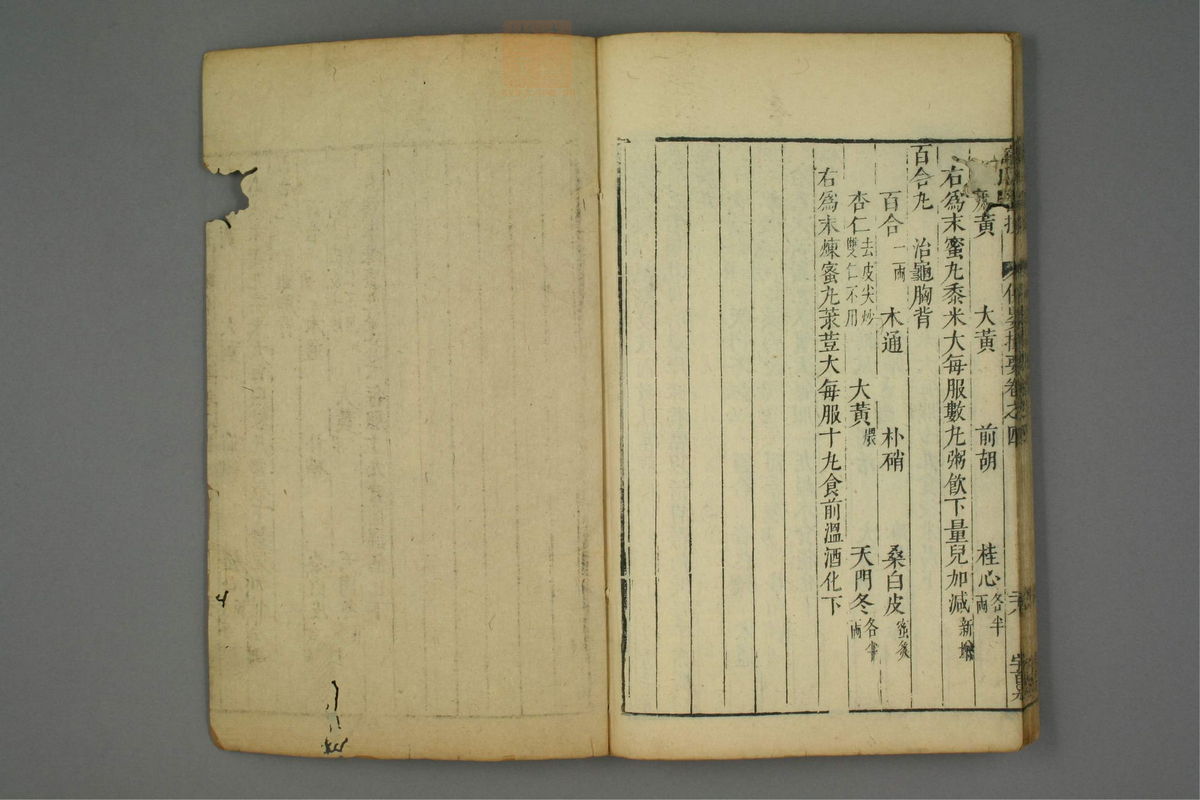 黃 大黃 前胡 桂心各半兩
右爲末蜜丸黍米大每服數丸粥飮下量兒加減新增
百合丸 治龜胸背
百合一兩 木通 朴硝 桑白皮蜜炙
杏仁去皮尖炒雙仁不用 大黃 天門冬各半兩
右爲末煉蜜丸菉荳大每服十丸食前溫酒化下